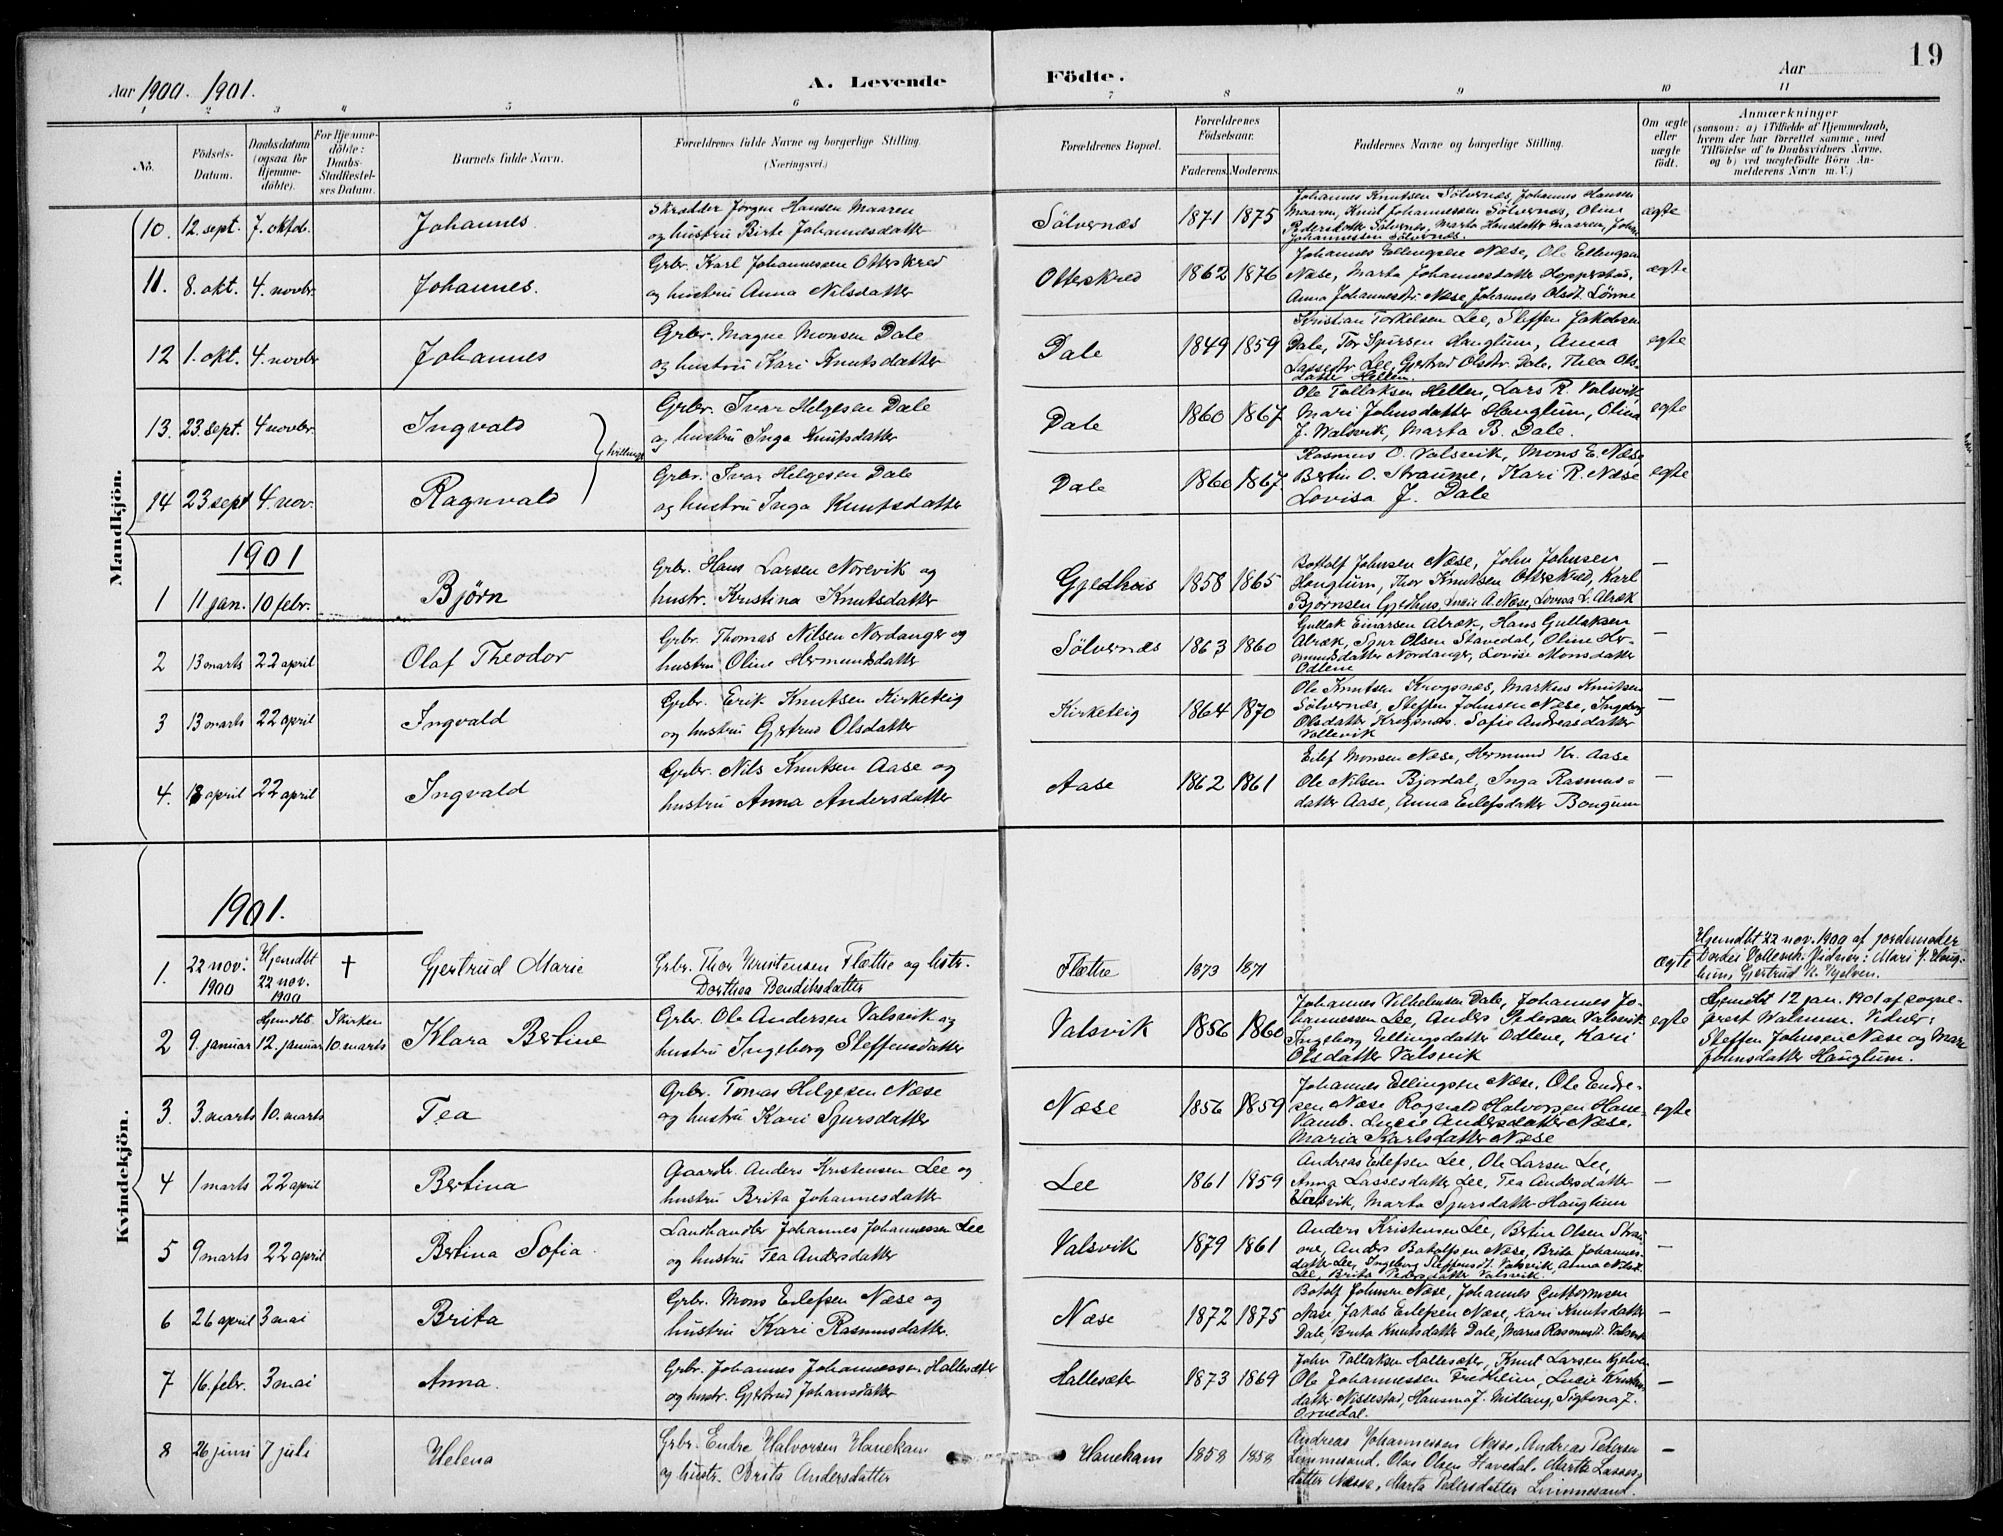 19
Aar 1900. 1901.
A. Levende Födte.
Aar
1 2 3 4 5 6 7 8 9 10 11
No.
Födsels-Datum.
Daabsdatum (ogsaa for Hjemmedöbte).
For Hjemmedöbte: Daabs-Stadfæstelses Datum.
Barnets fulde Navn.
Forældrenes fulde Navne og borgerlige Stilling.
(Næringsvei.)
Forældrenes Bopæl.
Forældrenes Födselsaar.
Faderens. Moderens.
Faddernes Navne og borgerlige Stilling.
Om ægte eller uægte födt.
Anmærkninger
(saasom: a) i Tilfælde af Hjemmedaab,
hvem der har forrettet samme, med
Tilföielse af to Daabsvidners Navne,
og b) ved uægtefödte Börn Anmelderens Navn m. V.)
Mandkjön.
10. 12. sept. 7. oktob. Johannes
Skrædder Jørgen Hansen Maaren
og hustru Birte Johannesdatter
Sölvernæs 1871 1875
Johannes Knutsen Sölvernæs, Johannes Hansen
Maaren, Knut Johannessen Sölvernæs, Oline
Pedersdatter Sölvernæs, Marta Hansdatter Maaren, Johan
Johannessen Sölvernæs.
ægte
11. 8. okt. 4. novbr. Johannes.
Grbr. Karl Johannessen Otterskred
og hustru Anna Nilsdatter
Otterskred 1862 1876
Johannes Ellingsen Næse, Ole Ellingsen
Næse, Marta Johannesdatter Hopperstad,
Anna Johannesdtr. Næse, Johannes Olsdt. Lönne
ægte
12 1. okt. 4. novbr Johannes
Grbr. Magne Monsen Dale
og hustru Kari Knutsdatter
Dale 1849 1859
Kristian Torkelsen Lee, Steffen Jakobsen
Dale, Tor Spursen Hauglum, Anna
Lassedtr. Lee, Gjertrud Olsdtr. Dale, Thea Ols-
datter Hellen.
egte
13. 23. sept. 4 novbr. Ingvald
Grbr. Ivar Helgesen Dale
og hustru Inga Knutsdatter
Dale 1860 1867
Ole Tollaksen Hellen, Lars R. Valsvik,
Mari Johnsdatter Hauglum, Olina
J. Walsvik, Marta B. Dale.
egte
tvillinger
14 23 sept 4. nov. Ragnvald
Grbr. Ivar Helgesen Dale
og hustru Inga Knutsdatter
Dale 1860 1867.
Rasmus O. Valsvik, Mons E. Næse,
Bertin O. Straume, Kari R. Næse
Lovisa J. Dale
egte
1901
1 11 jan. 10 febr. Bjørn
Grbr. Hans Larsen Norevik og
hustr. Kristina Knutsdatter
Gjedhus 1858 1865
Bottolf Johnsen Næse, John Johnsen
Hauglum, Thor Knutsen Otterskred, Karl
Bjørnsen Gjethus, Lucie A. Næse, Lovisa L. Alræk
—
2 13 marts 22 april Olaf Theodor
Grbr. Thomas Nilsen Nordanger og
hustru Oline Hermundsdatter
Sölvernæs 1863 1860
Gullak Einarsen Alræk, Hans Gullaksen
Alræk, Spur Olsen Stavedal, Oline Her-
mundsdatter Nordanger, Lovise Monsdatter
Odlene
—
3 13 marts 22 april Ingvald
Grbr. Erik Knutsen Kirketeig
og hustru Gjertrud Olsdatter
Kirketeig 1864 1870
Ole Knutsen Krogsnæs, Markus Knutsen
Sölvernæs, Steffen Johnsen Næse, Ingeborg
Olsdatter Krogsnæs. Sofie Andreasdatter
Vollevik
—
4. 18 april 22 april Ingvald
Grbr. Nils Knutsen Aase og
hustru Anna Andersdatter
Aase 1862 1861
Eilef Monsen Næse, Hermund Kr. Aase
Ole Nilsen Bjordal, Inga Rasmus-
datter Aase, Anna Eilefsdatter Bongum
—
Kvindekjön.
1901.
1. 22 nov. 1900 Hjemdbt 22 nov. 1900 † Gjertrud Marie
Grbr. Thor Kristensen Flætte og hstr.
Dorthea Bendiksdatter
Flætte 1873 1871
ægte
Hjemdbt 22 nov. 1900 af jordemoder
Dordei Vollevik. Vidner: Mari J. Haug-
lum, Gjertrud K. Kjelven.
2 9. januar Hjemdbt 12. januar I kirken 10. marts Klara Bertine
Grbr. Ole Andersen Valsvik og
hustru Ingeborg Steffensdatter
Valsvik 1856 1860
Johannes Vilhelmsen Dale, Johannes Jo-
hannessen Lee, Anders Pedersen Valsvik
Ingeborg Ellingsdatter Odlene, Kari
Olsdatter Valsvik
egte
Hjemdbt 12 jan. 1901 af sogne-
prest Walnum. Vidner:
Steffen Johnsen Næse og Mari
Johnsdatter Hauglum.
3. 3. marts 10. marts Tea
Grbr. Tomas Helgesen Næse
og hustru Kari Spursdatter
Næse 1856 1859
Johannes Ellingsen Næse, Ole Endre-
sen Næse Rognald Halvorsen Hane-
kamb. Lucie Andersdatter Næse,
Maria Karlsdatter Næse
egte
4 1 marts 22 april Bertina
Gaardbr. Anders Kristensen Lee og
hustru Brita Johannesdatter
Lee 1861 1859
Andreas Eilefsen Lee, Ole Larsen Lee,
Anna Lassesdatter Lee, Tea Andersdatter
Valsvik, Marta Spursdatter Hauglum
—
5 9 marts 22 april Bertina Sofia.
Landhandler Johannes Johannessen Lee
og hustru Tea Andersdatter
Valsvik 1879 1861
Anders Kristensen Lee, Bertin Olsen Strau-
me, Anders Botolfsen Næse, Brita Johannes-
datter Lee, Ingeborg Steffensdt. Valsvik, Anna Nilsdt.
Lee, Brita Pedersdatter Valsvik.
—
6 26 april 3 mai Brita
Grbr. Mons Eilefsen Næse og
hustru Kari Rasmusdatter.
Næse 1872 1875
Botolf Johnsen Næse, Johannes Guttormsen
Næse, Jakob Eilefsen Næse, Kari Knutsdatter
Dale, Brita Knutsdatter Dale, Maria Rasmusdt. Valsvik
—
7 16. febr. 3 mai Anna.
Grbr. Johannes Johannessen Hallesæter
og hustr. Gjertrud Johansdatter
Hallesæter 1873 1869
John Tollaksen Hallesæter, Knut Larsen Kjelven
Ole Johannessen Frikheim, Lucie Knuts-
datter Nissestad, Hansina J. Midlang, Sigtona J.
Ornedal.
—
8 26 juni 7 juli Helena
Grbr. Endre Halvorsen Hanekam
og hustr. Brita Andersdatter
Hanekam 1858 1858
Andreas Johannessen Næse, Andreas Pedersen
Limmesand. Olai Olsen Stavedal. Marthe Lasses-
datter Næsse, Marta Pedersdatter Limmesand.
—